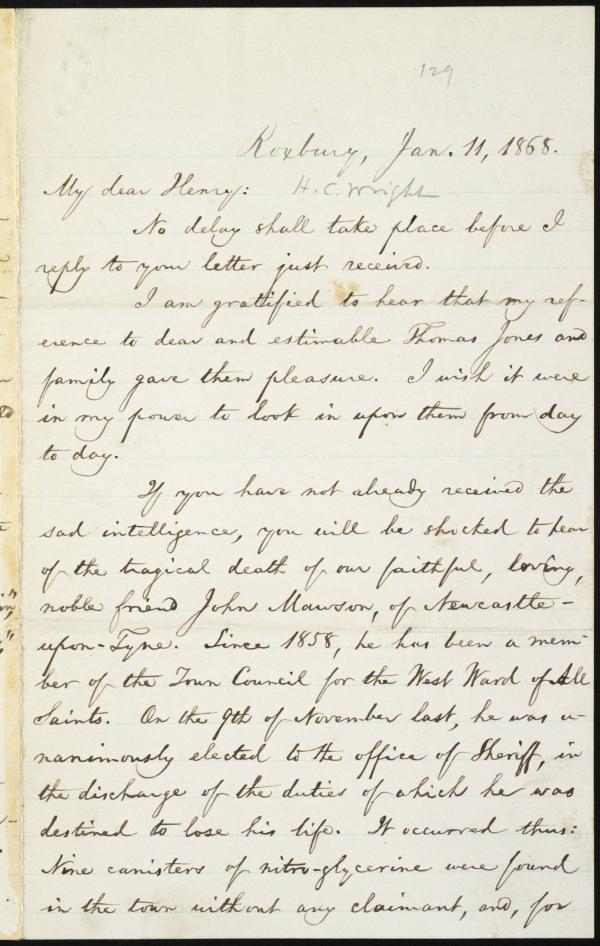 129
Roxbury, Jan. 11, 1868.
My dear Henry: H. C. Wright
No delay shall take place before I
reply to your letter just received.
I am gratified to hear that my ref-
erence to dear and estimable Thomas Jones and
family gave them pleasure. I wish it were
in my power to look in upon them from day
to day.
If you have not already received the
sad intelligence, you will be shocked to hear
of the tragical death of our faithful, loving,
noble friend John Mawson, of Newcastle-
upon-Tyne. Since 1858, he has been a mem-
ber of the Town Council for the West Ward of All
Saints. On the 9th of November last, he was u-
nanimously elected to the office of Sheriff, in
the discharge of the duties of which he was
destined to lose his life. It occurred thus:
Nine canisters of nitro-glycerine were found
in the town without any claimant, and, for